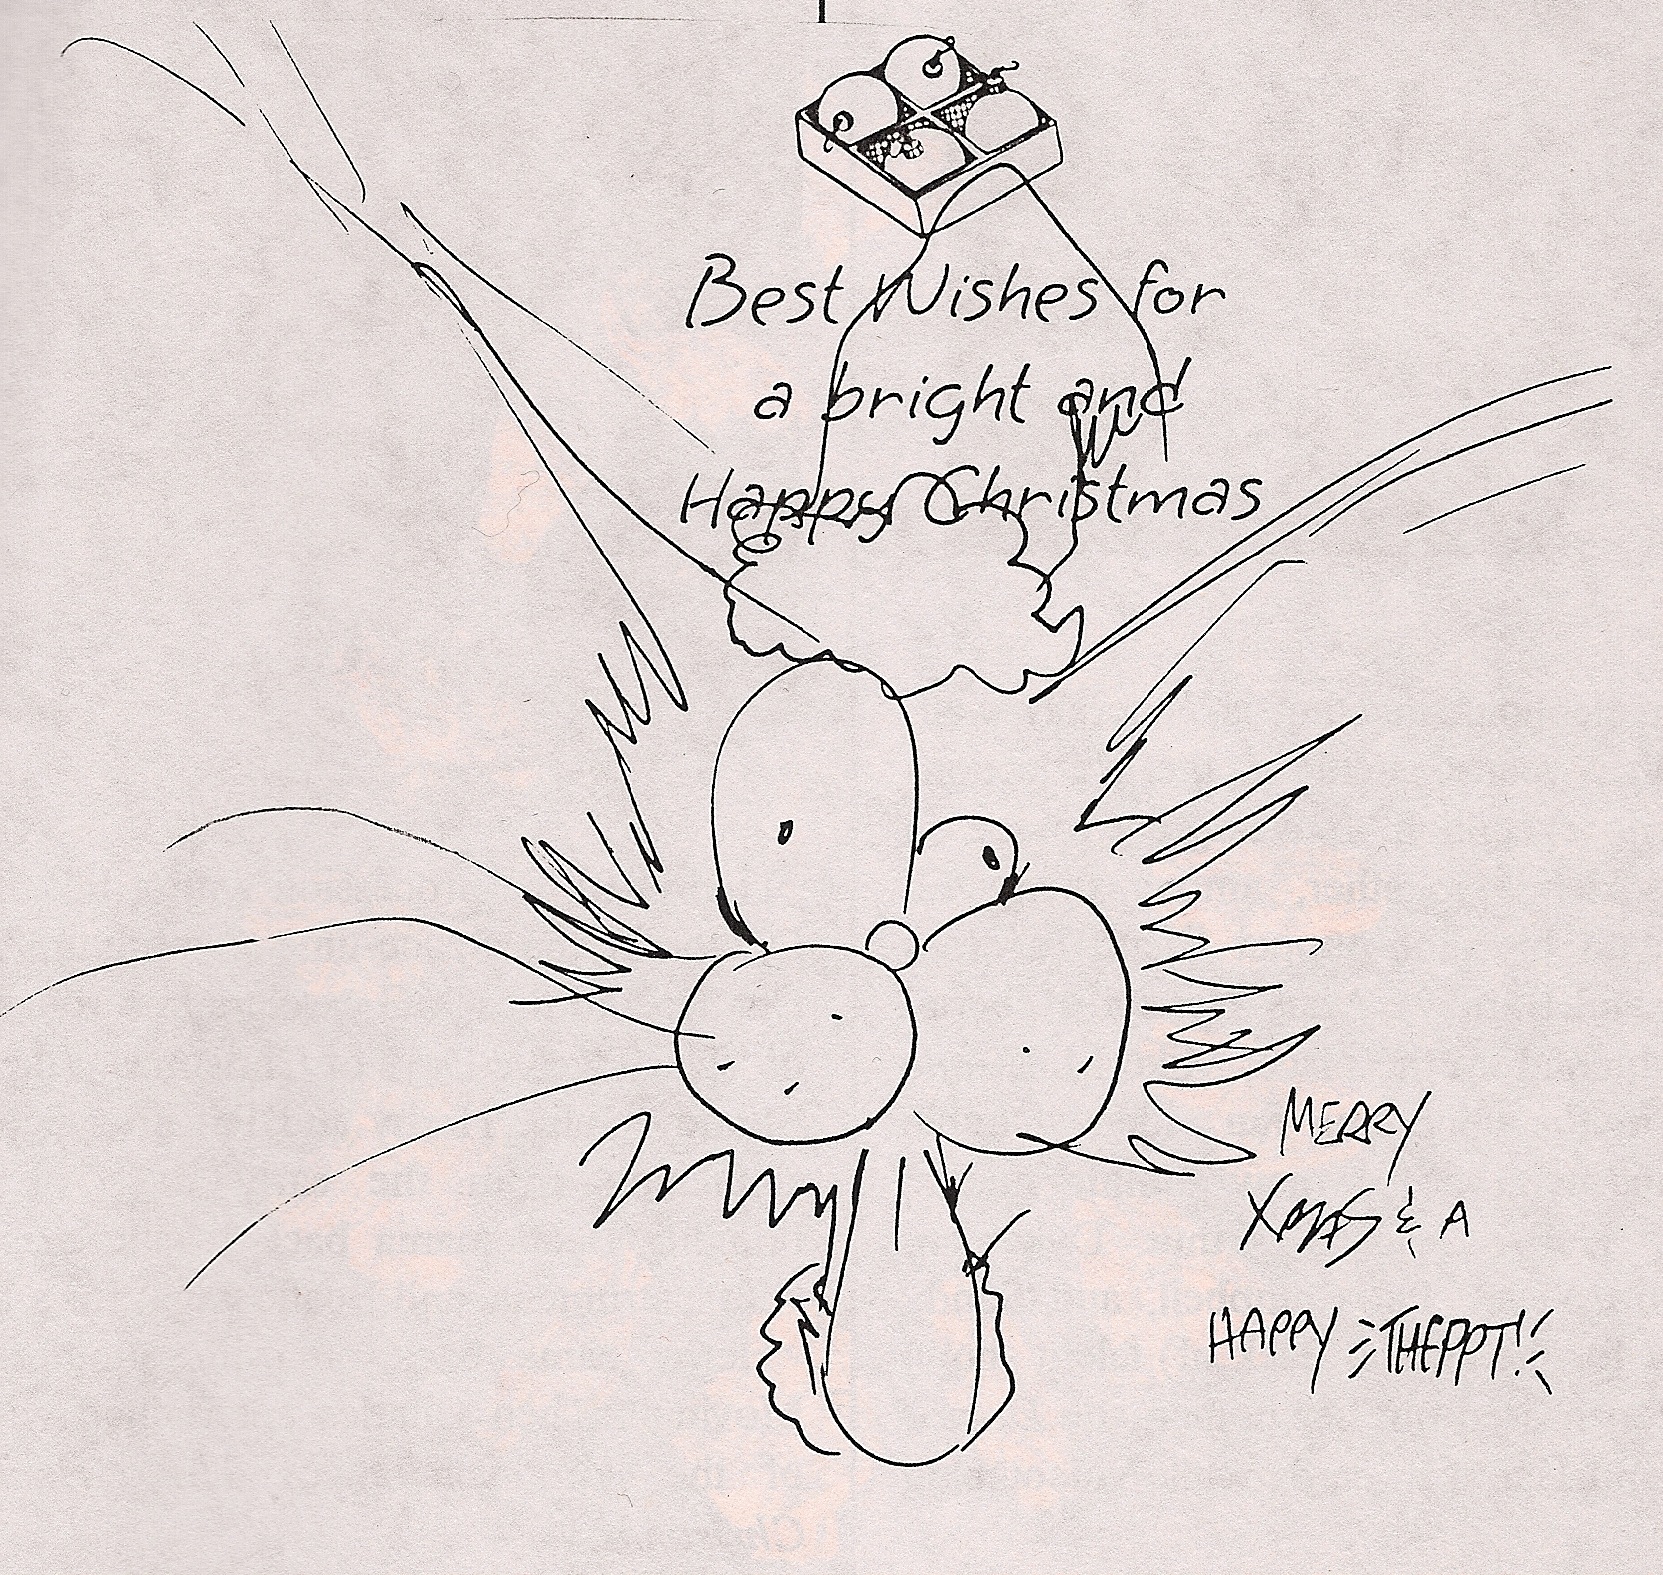 Best Wishes for
a bright and
Happy Christmas
MERRY
XMAS & A
HAPPY THEPPT!